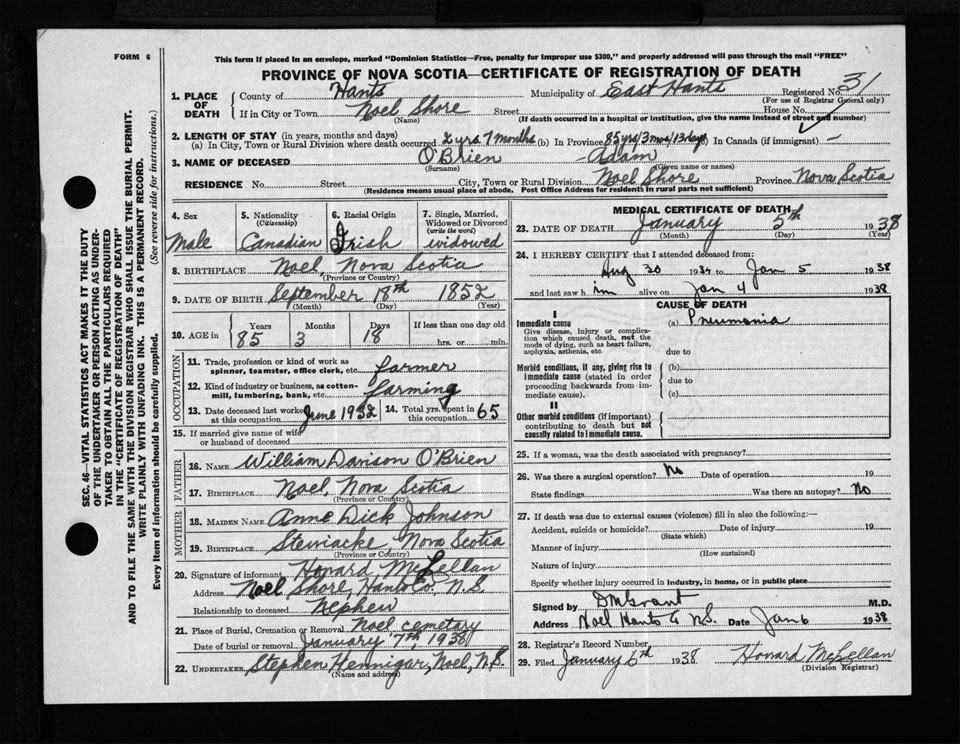 FORM 6
This form if placed in an envelope, marked "Dominion Statistics—Free, penalty for improper use $300," and properly addressed will pass through the mail "FREE"
PROVINCE OF NOVA SCOTIA—CERTIFICATE OF REGISTRATION OF DEATH
SEC. 46—VITAL STATISTICS ACT MAKES IT THE DUTY
OF THE UNDERTAKER OR PERSON ACTING AS UNDER-
TAKER TO OBTAIN ALL THE PARTICULARS REQUIRED
IN THE "CERTIFICATE OF REGISTRATION OF DEATH"
AND TO FILE THE SAME WITH THE DIVISION REGISTRAR WHO SHALL ISSUE THE BURIAL PERMIT.
WRITE PLAINLY WITH UNFADING INK. THIS IS A PERMANENT RECORD.
Every item of information should be carefully supplied. (See reverse side for instructions.)
1. PLACE OF DEATH County of Hants Municipality of East Hants Registered No. 31
(For use of Registrar General only)
If in City or Town Noel Shore Street House No.
(Name) (If death occurred in a hospital or institution, give the name instead of street and number)
2. LENGTH OF STAY (in years, months and days)
(a) In City, Town or Rural Division where death occurred 2 yrs 7 months (b) In Province 85 yrs/3 mos/13 days (c) In Canada (if immigrant) —
3. NAME OF DECEASED O'Brien - Adam
(Surname) (Given name or names)
RESIDENCE No. Street City, Town or Rural Division Noel Shore Province Nova Scotia
(Residence means usual place of abode. Post Office Address for residents in rural parts not sufficient)
4. Sex Male
5. Nationality (Citizenship) Canadian
6. Racial Origin Irish
7. Single, Married, Widowed or Divorced (write the word) widowed
8. BIRTHPLACE Noel, Nova Scotia
(Province or Country)
9. DATE OF BIRTH September 18th 1852
(Month) (Day) (Year)
10. AGE in Years 85 Months 3 Days 18 If less than one day old hrs. or min.
OCCUPATION
11. Trade, profession or kind of work as spinner, teamster, office clerk, etc. farmer
12. Kind of industry or business, as cotton-mill, lumbering, bank, etc. farming
13. Date deceased last worked at this occupation June 1932 14. Total yrs. spent in this occupation 65
15. If married give name of wife or husband of deceased
FATHER
16. NAME William Davison O'Brien
17. BIRTHPLACE Noel, Nova Scotia
(Province or Country)
MOTHER
18. MAIDEN NAME Anne Dick Johnson
19. BIRTHPLACE Stewiacke, Nova Scotia
(Province or Country)
20. Signature of informant Howard McLellan
Address Noel Shore, Hants Co. N.S.
Relationship to deceased Nephew
21. Place of Burial, Cremation or Removal Noel cemetary
Date of burial or removal January 7th, 1938
22. UNDERTAKER Stephen Hennigar, Noel, N.S.
(Name and address)
MEDICAL CERTIFICATE OF DEATH
23. DATE OF DEATH January 5th 1938
(Month) (Day) (Year)
24. I HEREBY CERTIFY that I attended deceased from:
Aug 30 1934 to Jan 5 1938
and last saw him alive on Jan 4 1938
CAUSE OF DEATH
I
Immediate cause (a) Pneumonia
Give disease, injury or complication which caused death, not the mode of dying, such as heart failure, asphyxia, asthenia, etc.
due to
Morbid conditions, if any, giving rise to immediate cause (stated in order proceeding backwards from immediate cause).
(b)
due to
(c)
II
Other morbid conditions (if important) contributing to death but not causally related to immediate cause.
25. If a woman, was the death associated with pregnancy?
26. Was there a surgical operation? No Date of operation 19
State findings Was there an autopsy? No
27. If death was due to external causes (violence) fill in also the following:—
Accident, suicide or homicide? Date of injury 19
(State which)
Manner of injury
(How sustained)
Nature of injury
Specify whether injury occurred in industry, in home, or in public place
Signed by D M Grant M.D.
Address Noel Hants Co N.S. Date Jan 6 1938
28. Registrar's Record Number
29. Filed January 6th 1938 Howard McLellan
(Division Registrar)